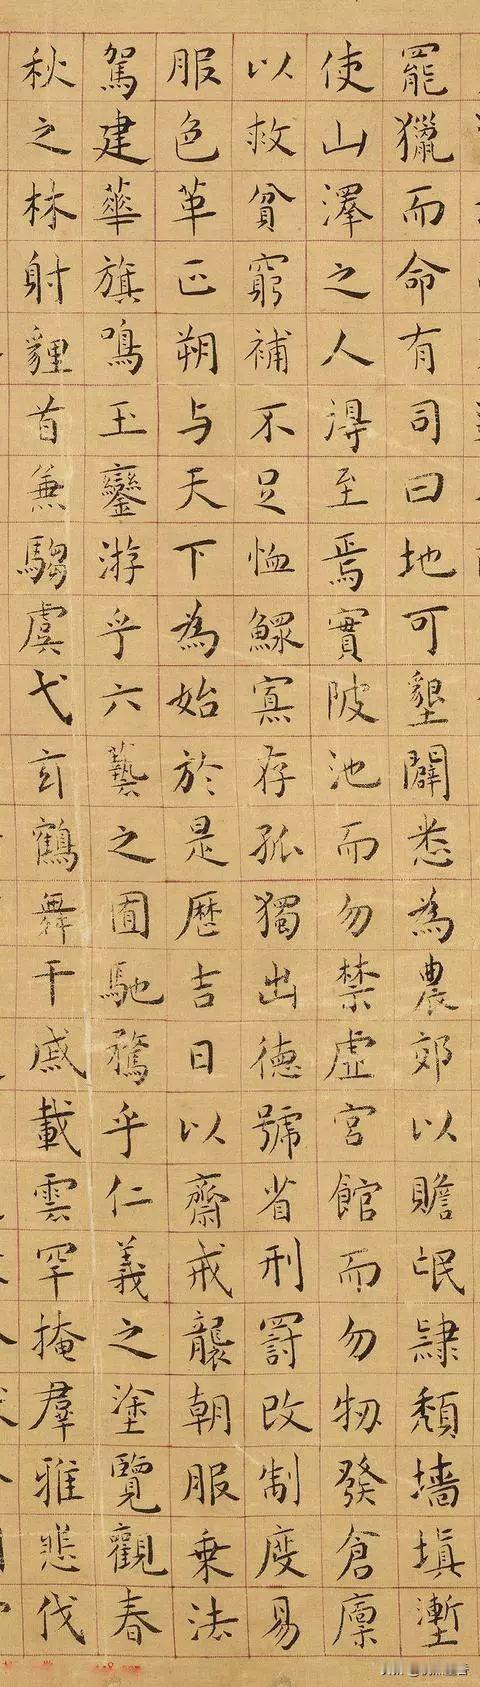 罷獵而命有司曰地可墾闢悉為農郊以贍氓隸頹墻填塹
使山澤之人得至焉實陂池而勿禁虛宮館而勿牣發倉廩
以救貧窮補不足恤鰥寡存孤獨出德號省刑罰改制度易
服色革正朔与天下為始於是歴吉日以齋戒襲朝服乗法
駕建華旗鳴玉鑾游乎六藝之囿馳騖乎仁義之塗覽觀春
秋之林射貍首兼騶虞弋玄鶴舞干戚載雲罕掩羣雅悲伐